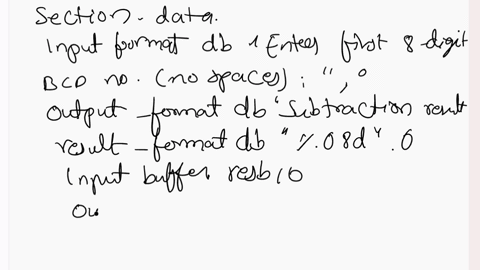 Section. data.
Input format db "Enter first 8-digit
BCD no. (no spaces) : ", 0
Output _format db 'Subtraction result
result _format db " %.08d". 0
Input buffer resb 10
Ou